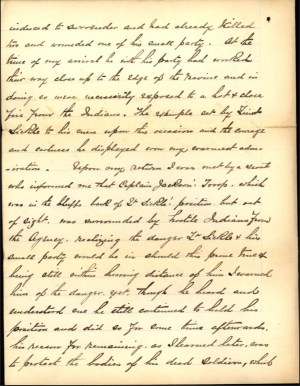 induced to surrender and had already killed
two and wounded one of his small party. At the
time of my arrival he with his party had worked
their way close up to the edge of the ravine and in
doing so were necessarily exposed to a hot & close
fire from the Indians. The example set by Lieut
Sickle to his men upon this occasion and the courage
and coolness he displayed won my warmest adm-
iration. Upon my return I was met by a scout
who informed me that Captain Jackson's Troop. which
was in the bluffs back of Lt Sickle's position but out
of sight. was surrounded by hostile Indians from
the Agency. realizing the danger Lt Sickle & his
small party would be in should this prove true &
being still within hearing distance of him I warned
him of the danger. yet. Though he heard and
understood me he still continued to hold his
position and did so for some time afterwards.
his reason for remaining. as I learned later. was
to protect the bodies of his dead soldiers, which